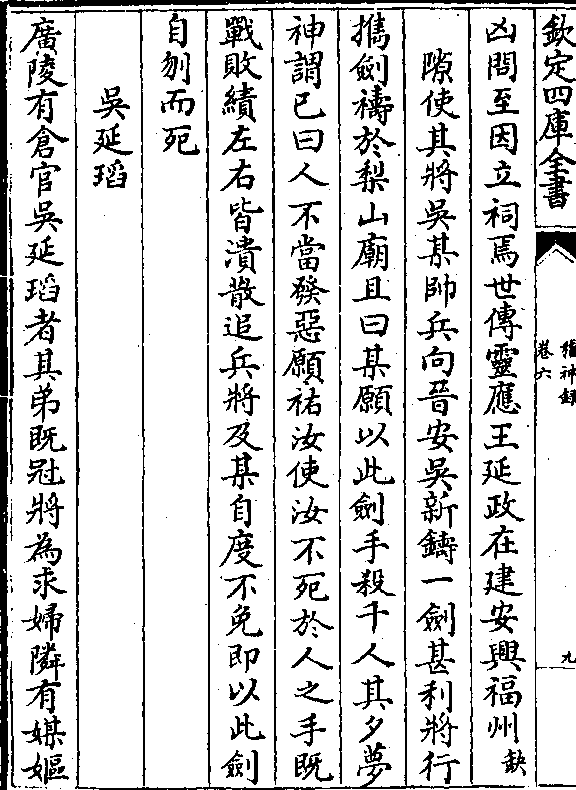 欽定四庫全書
稽神録
卷六
九
凶問至因立祠焉世傳靈應王延政在建安興福州缺
隙使其將吳某帥兵向晉安吳新鑄一劍甚利將行
攜劍禱於梨山廟且曰某願以此劍手殺千人其夕夢
神謂已曰人不當發惡願祐汝使汝不死於人之手既
戰敗績左右皆潰散追兵將及某自度不免即以此劍
自刎而死
吳延瑫
廣陵有倉官吳延瑫者其弟既冠將為求婦隣有媒嫗